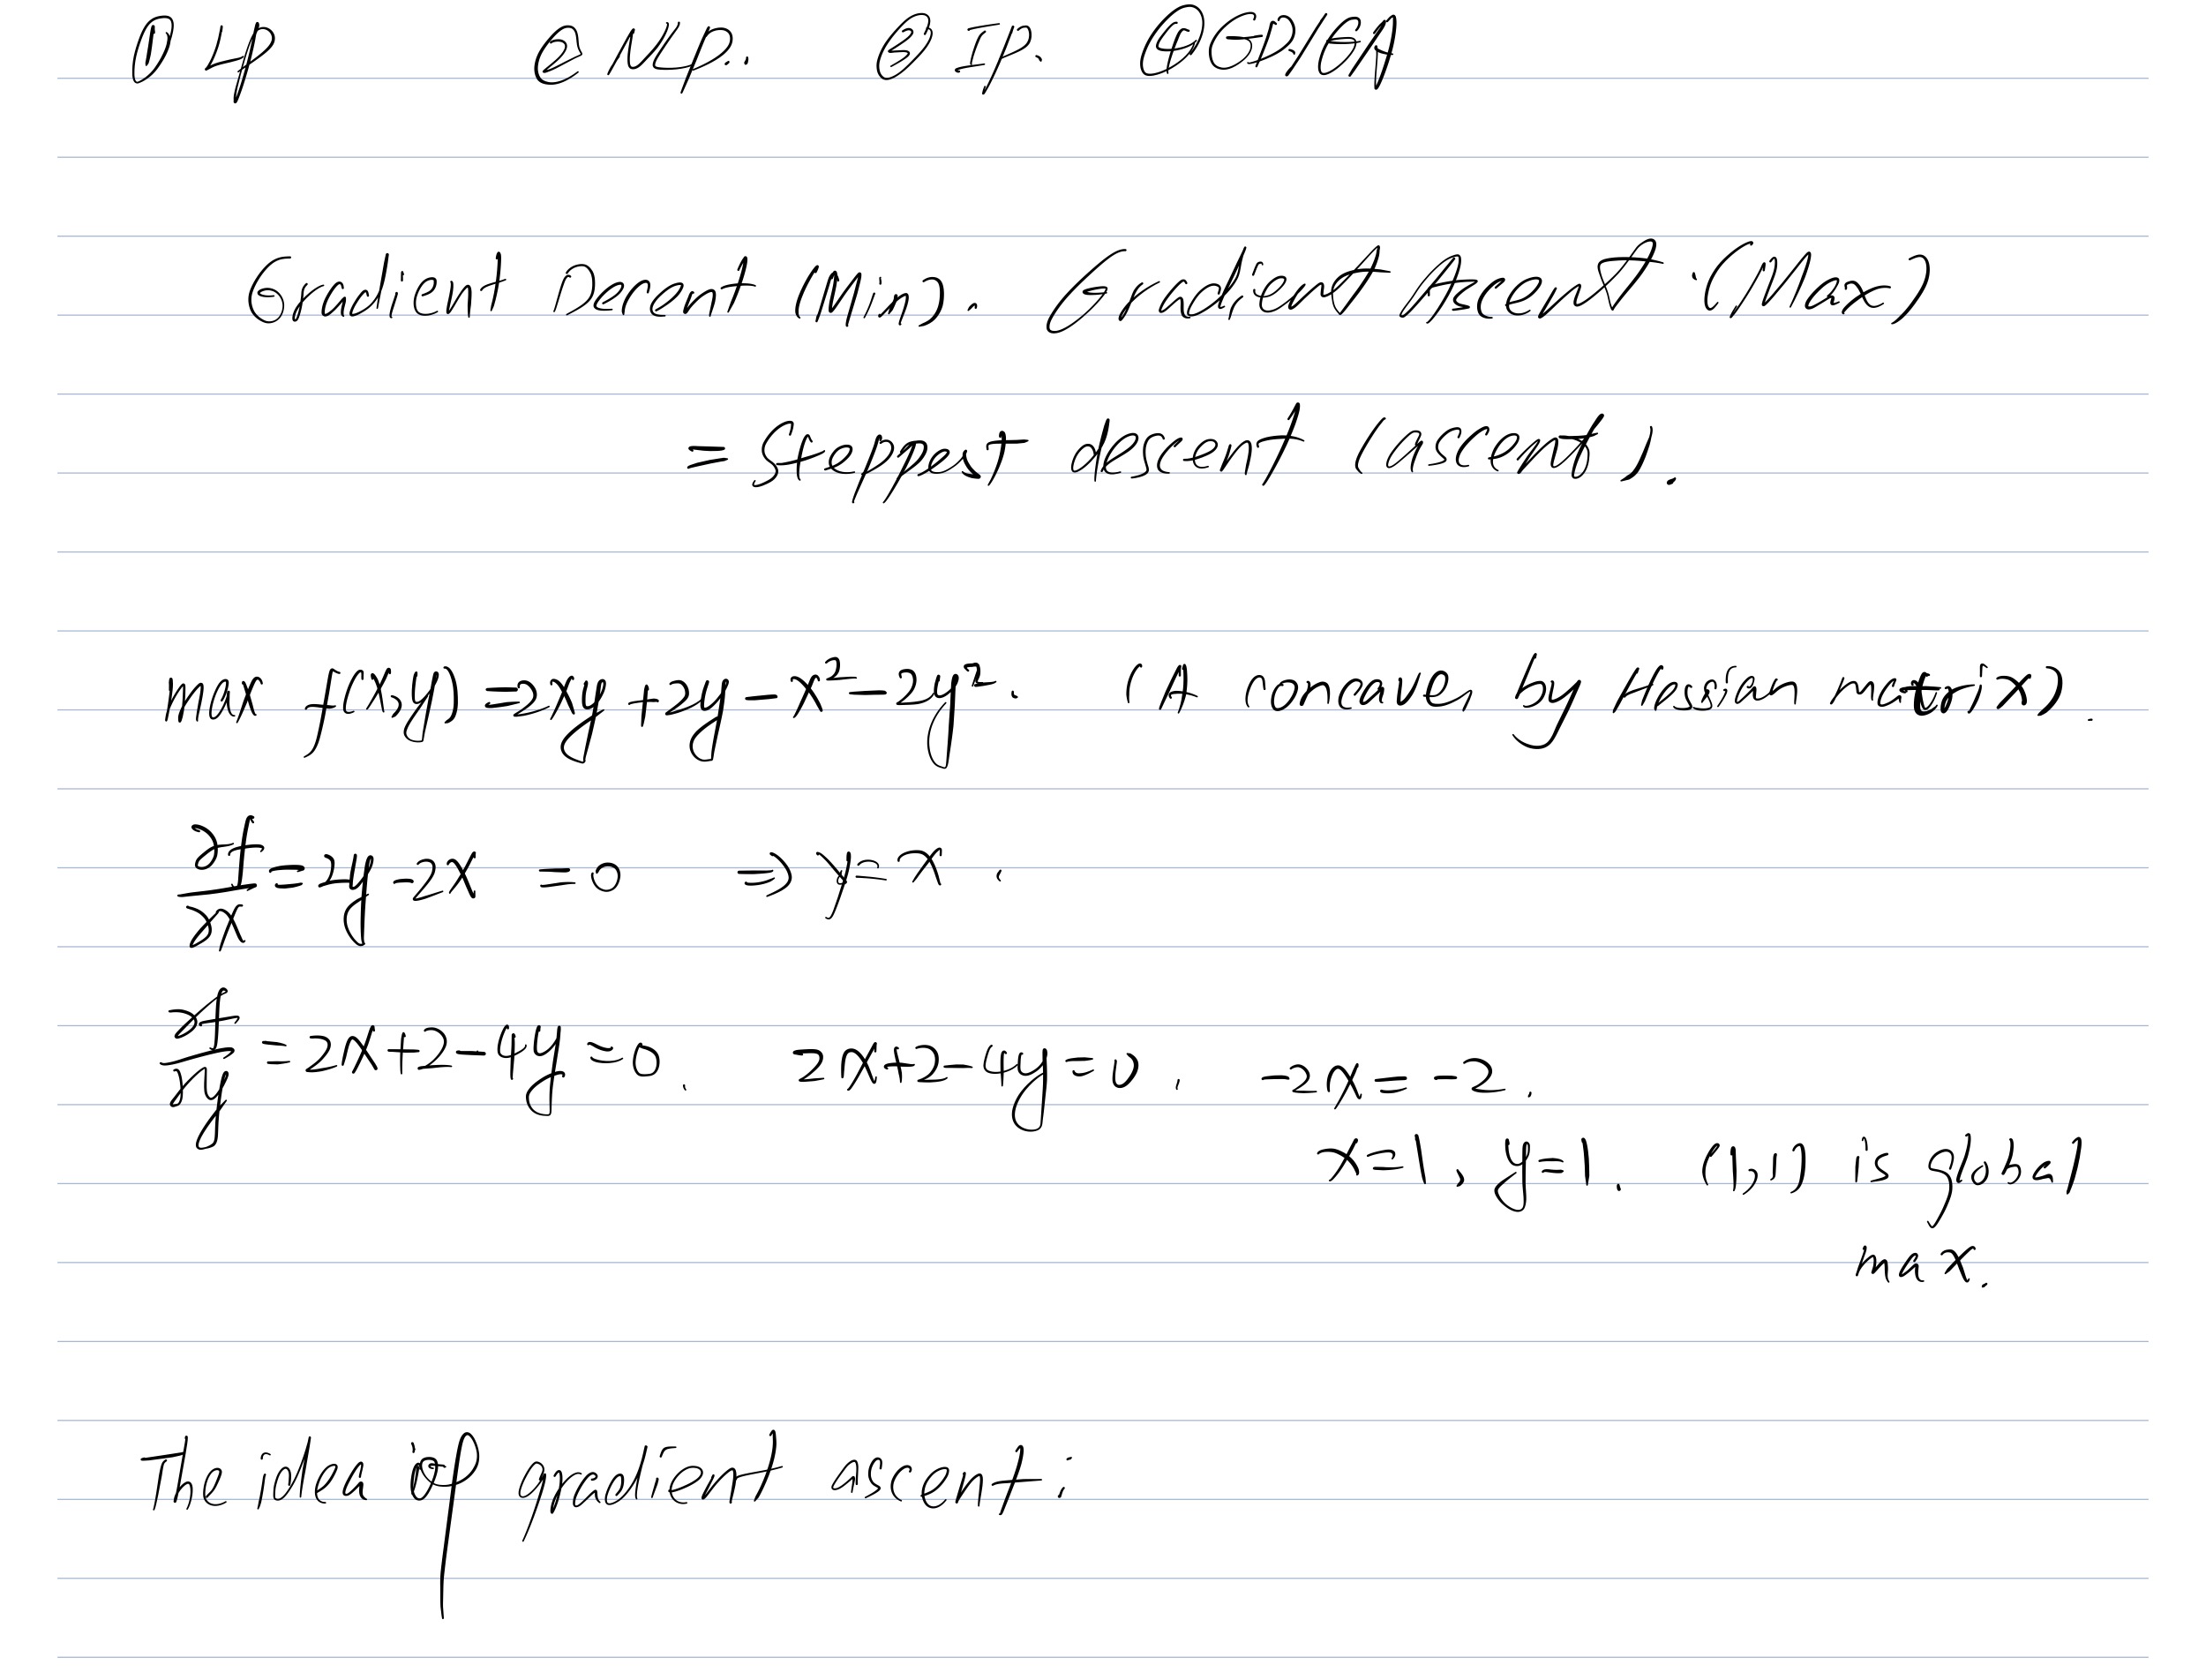 ① LP ② NLP. ③ IP. ④ GD/GA
Gradient Decent (Min). Gradient Ascent (Max)
= Steppest descent (ascent).
max f(x,y)=2xy+2y-x²-2y². (A concave, by Hessian matrix).
∂f/∂x=2y-2x =0 ⇒ y=x.
∂f/∂y=2x+2-4y=0. 2x+2-4y=0, -2x=-2.
x=1, y=1. (1,1) is global
max.
The idea of gradient ascent: